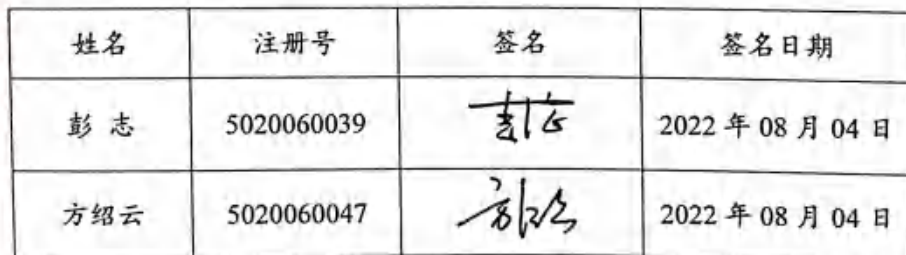 姓名 注册号 签名 签名日期
彭 志 5020060039 2022 年 08 月 04 日
方绍云 5020060047 2022 年 08 月 04 日